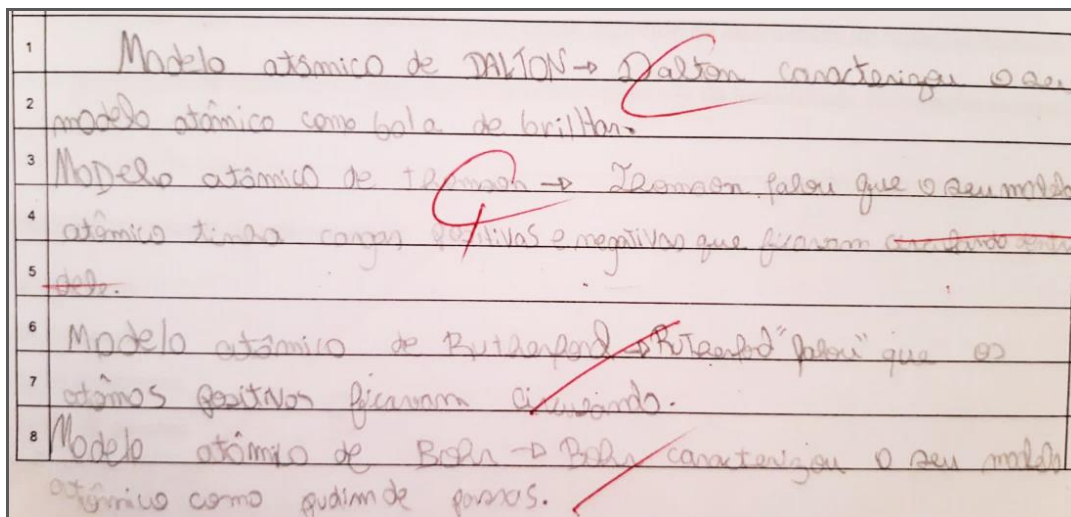 1 Modelo atômico de DALTON → Dalton caracterizou o seu
2 modelo atômico como bola de brilhar.
3 MoDelo atômico de tromson → Tromson falou que o seu modelo
4 atômico tinha cargas positivas e negativas que ficavam circulando dentro
5 dele.
6 Modelo atômico de Rutherford → RuTherford "falou" que os
7 atômos positivos ficavam circulando.
8 Modelo atômico de Bohr → Bohr caracterizou o seu modelo
atômico como pudim de passas.